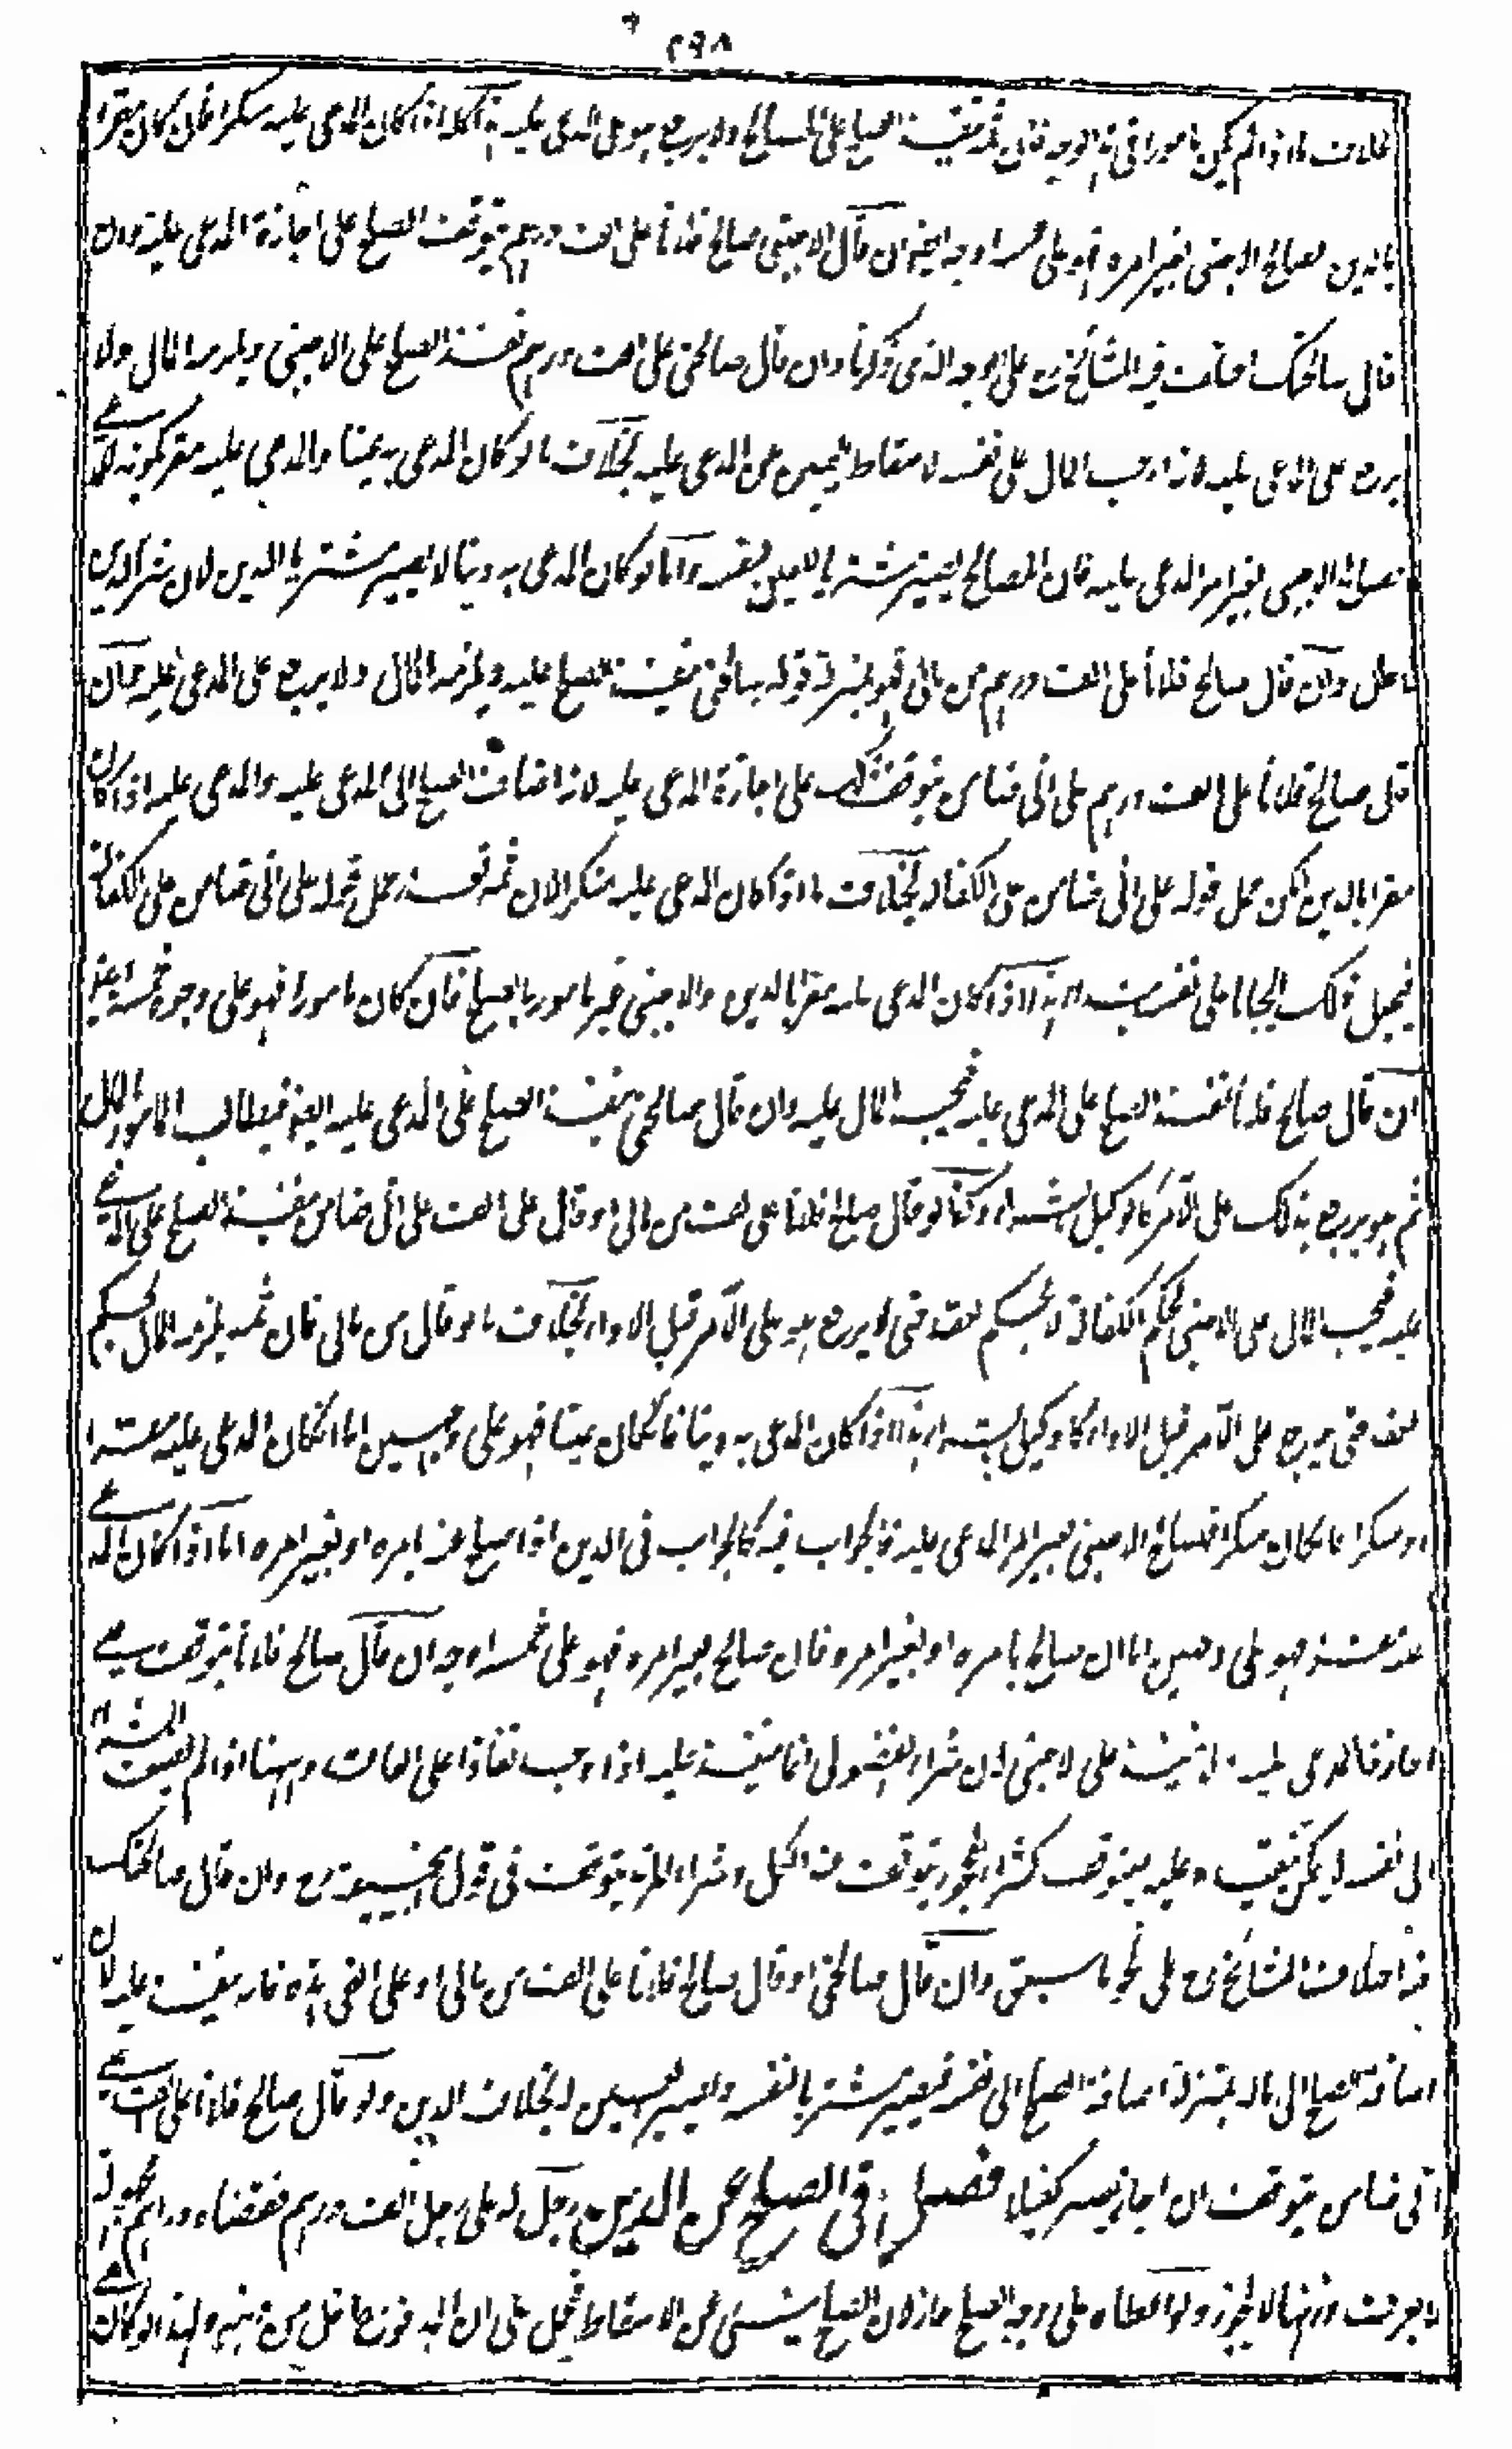 ٢٩٨
بخلاف ما اذا لم يكن مامورا فى هذه الوجوه فان ثمه ينفذ الصلح على المصالح ولا يرجع هو على المدعى عليه هذا كله اذا كان المدعى عليه منكرا فان كان مقرا
بالدين فصالح الاجنبى بغير امره فهو على خمسة اوجه ايضا ان قال الاجنبى صالح فلانا على الف درهم يتوقف الصلح على اجازة المدعى عليه وان
قال صالحتك اختلف فيه المشائخ رح على الوجه الذى ذكرنا وان قال صالحنى على الف درهم نفذ الصلح على الاجنبى ويلزمه المال ولا
يرجع على المدعى عليه لانه اوجب المال على نفسه لاسقاط اليمين عن المدعى عليه بخلاف ما لو كان المدعى به عينا والمدعى عليه مقر بكونه للمدعى
فصالحه الاجنبى بغير امر المدعى عليه فان المصالح يصير مشتريا للعين لنفسه واما لو كان المدعى به دينا لا يصير مشتريا للدين لان شراء الدين
باطل وان قال صالح فلانا على الف درهم من مالى فهو بمنزلة قوله صالحنى ينفذ الصلح عليه ويلزمه المال ولا يرجع على المدعى عليه وان
قال صالح فلانا على الف درهم على انى ضامن يتوقف ذلك على اجازة المدعى عليه لانه اضاف الصلح الى المدعى عليه والمدعى عليه اذا كان
مقرا بالدين امكن حمل قوله على انى ضامن على الكفالة بخلاف ما اذا كان المدعى عليه منكرا لان ثمه تعذر حمل قوله على انى ضامن على الكفالة
فيجعل ذلك ايجابا على نفسه هذا اذا كان المدعى عليه مقرا بالدين والاجنبى غير مامور بالصلح فان كان مامورا فهو على وجوه خمسة ايضا
ان قال صالح فلانا نفذ الصلح على المدعى عليه فيجب المال عليه وان قال صالحنى ينفذ الصلح على المدعى عليه ايضا فيطالب المامور بالمال
ثم هو يرجع بذلك على الآمر كالوكيل بالشراء وكذا لو قال صالح فلانا على الف من مالى او قال على الف على انى ضامن ينفذ الصلح على المدعى
عليه فيجب المال على الاجنبى بحكم الكفالة لا بحكم العقد حتى لا يرجع هو على الآمر قبل الاداء بخلاف ما لو قال من مالى فان ثمه يلزمه المال بحكم
العقد حتى يرجع على الآمر قبل الاداء كالوكيل بالشراء هذا اذا كان المدعى به دينا فان كان عينا فهو على وجهين اما ان كان المدعى عليه مقرا
او منكرا فان كان منكرا فصالح الاجنبى بغير امر المدعى عليه فالجواب فيه كالجواب فى الدين اذا صالح عنه بامره او بغير امره اما اذا كان المدعى
عليه مقرا فهو على وجهين اما ان صالح بامره او بغير امره فان صالح بغير امره فهو على خمسة اوجه ان قال صالح فلانا يتوقف على
اجازة المدعى عليه لا ينفذ على الاجنبى لان شراء الفضولى انما ينفذ عليه اذا وجب نفاذا على العاقد وههنا اذا لم يضف الشراء
الى نفسه لا يمكن تنفيذه عليه فيتوقف كشراء المحجور يتوقف عند الكل وشراء المرتد يتوقف فى قول ابى حنيفة رح وان قال صالحتك
فذا اختلاف المشائخ رح على نحو ما سبق وان قال صالحنى او قال صالح فلانا على الف من مالى او على الفى هذه فانه ينفذ عليه لان
اضافة الصلح الى ماله بمنزلة اضافة الصلح الى نفسه فيصير مشتريا لنفسه ويصير العين له بخلاف الدين ولو قال صالح فلانا على الف على
انى ضامن يتوقف ان اجاز يصير كفيلا فصل فى الصلح عن الدين رجل له على رجل الف درهم فقضاه دراهم مجهولة
لا يعرف وزنها لا يجوز ولو اعطاه على وجه الصلح جاز لان الصلح ينبئ عن الاسقاط فيحمل على ان المدفوع اقل من حقه ولهذا لو كان